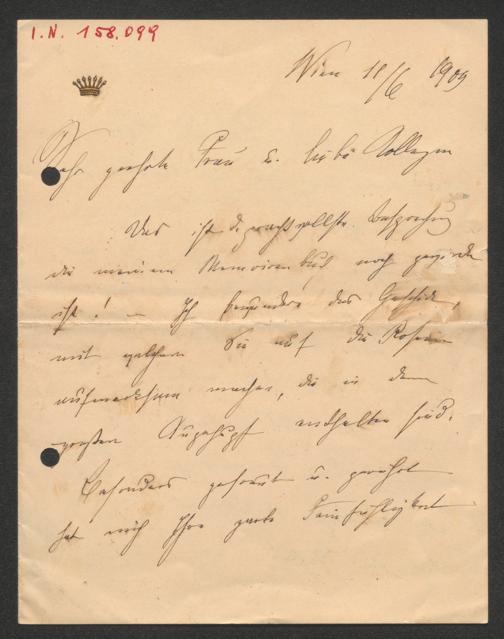 I.N. 158.099
Wien 11/6 1909
Sehr geehrte Frau u. liebe Kollegin
Das ist die prachtvollste Besprechung
die meinem Memoirenbuch noch geworden
ist! – Ich bewundere das Geschick,
mit welchem Sie auf die Rosinen
aufmerksam machen, die in dem
großen Gugelhupf enthalten sind.
Besonders gefreut u. gerührt
hat mich Ihre zarte Feinfühligkeit